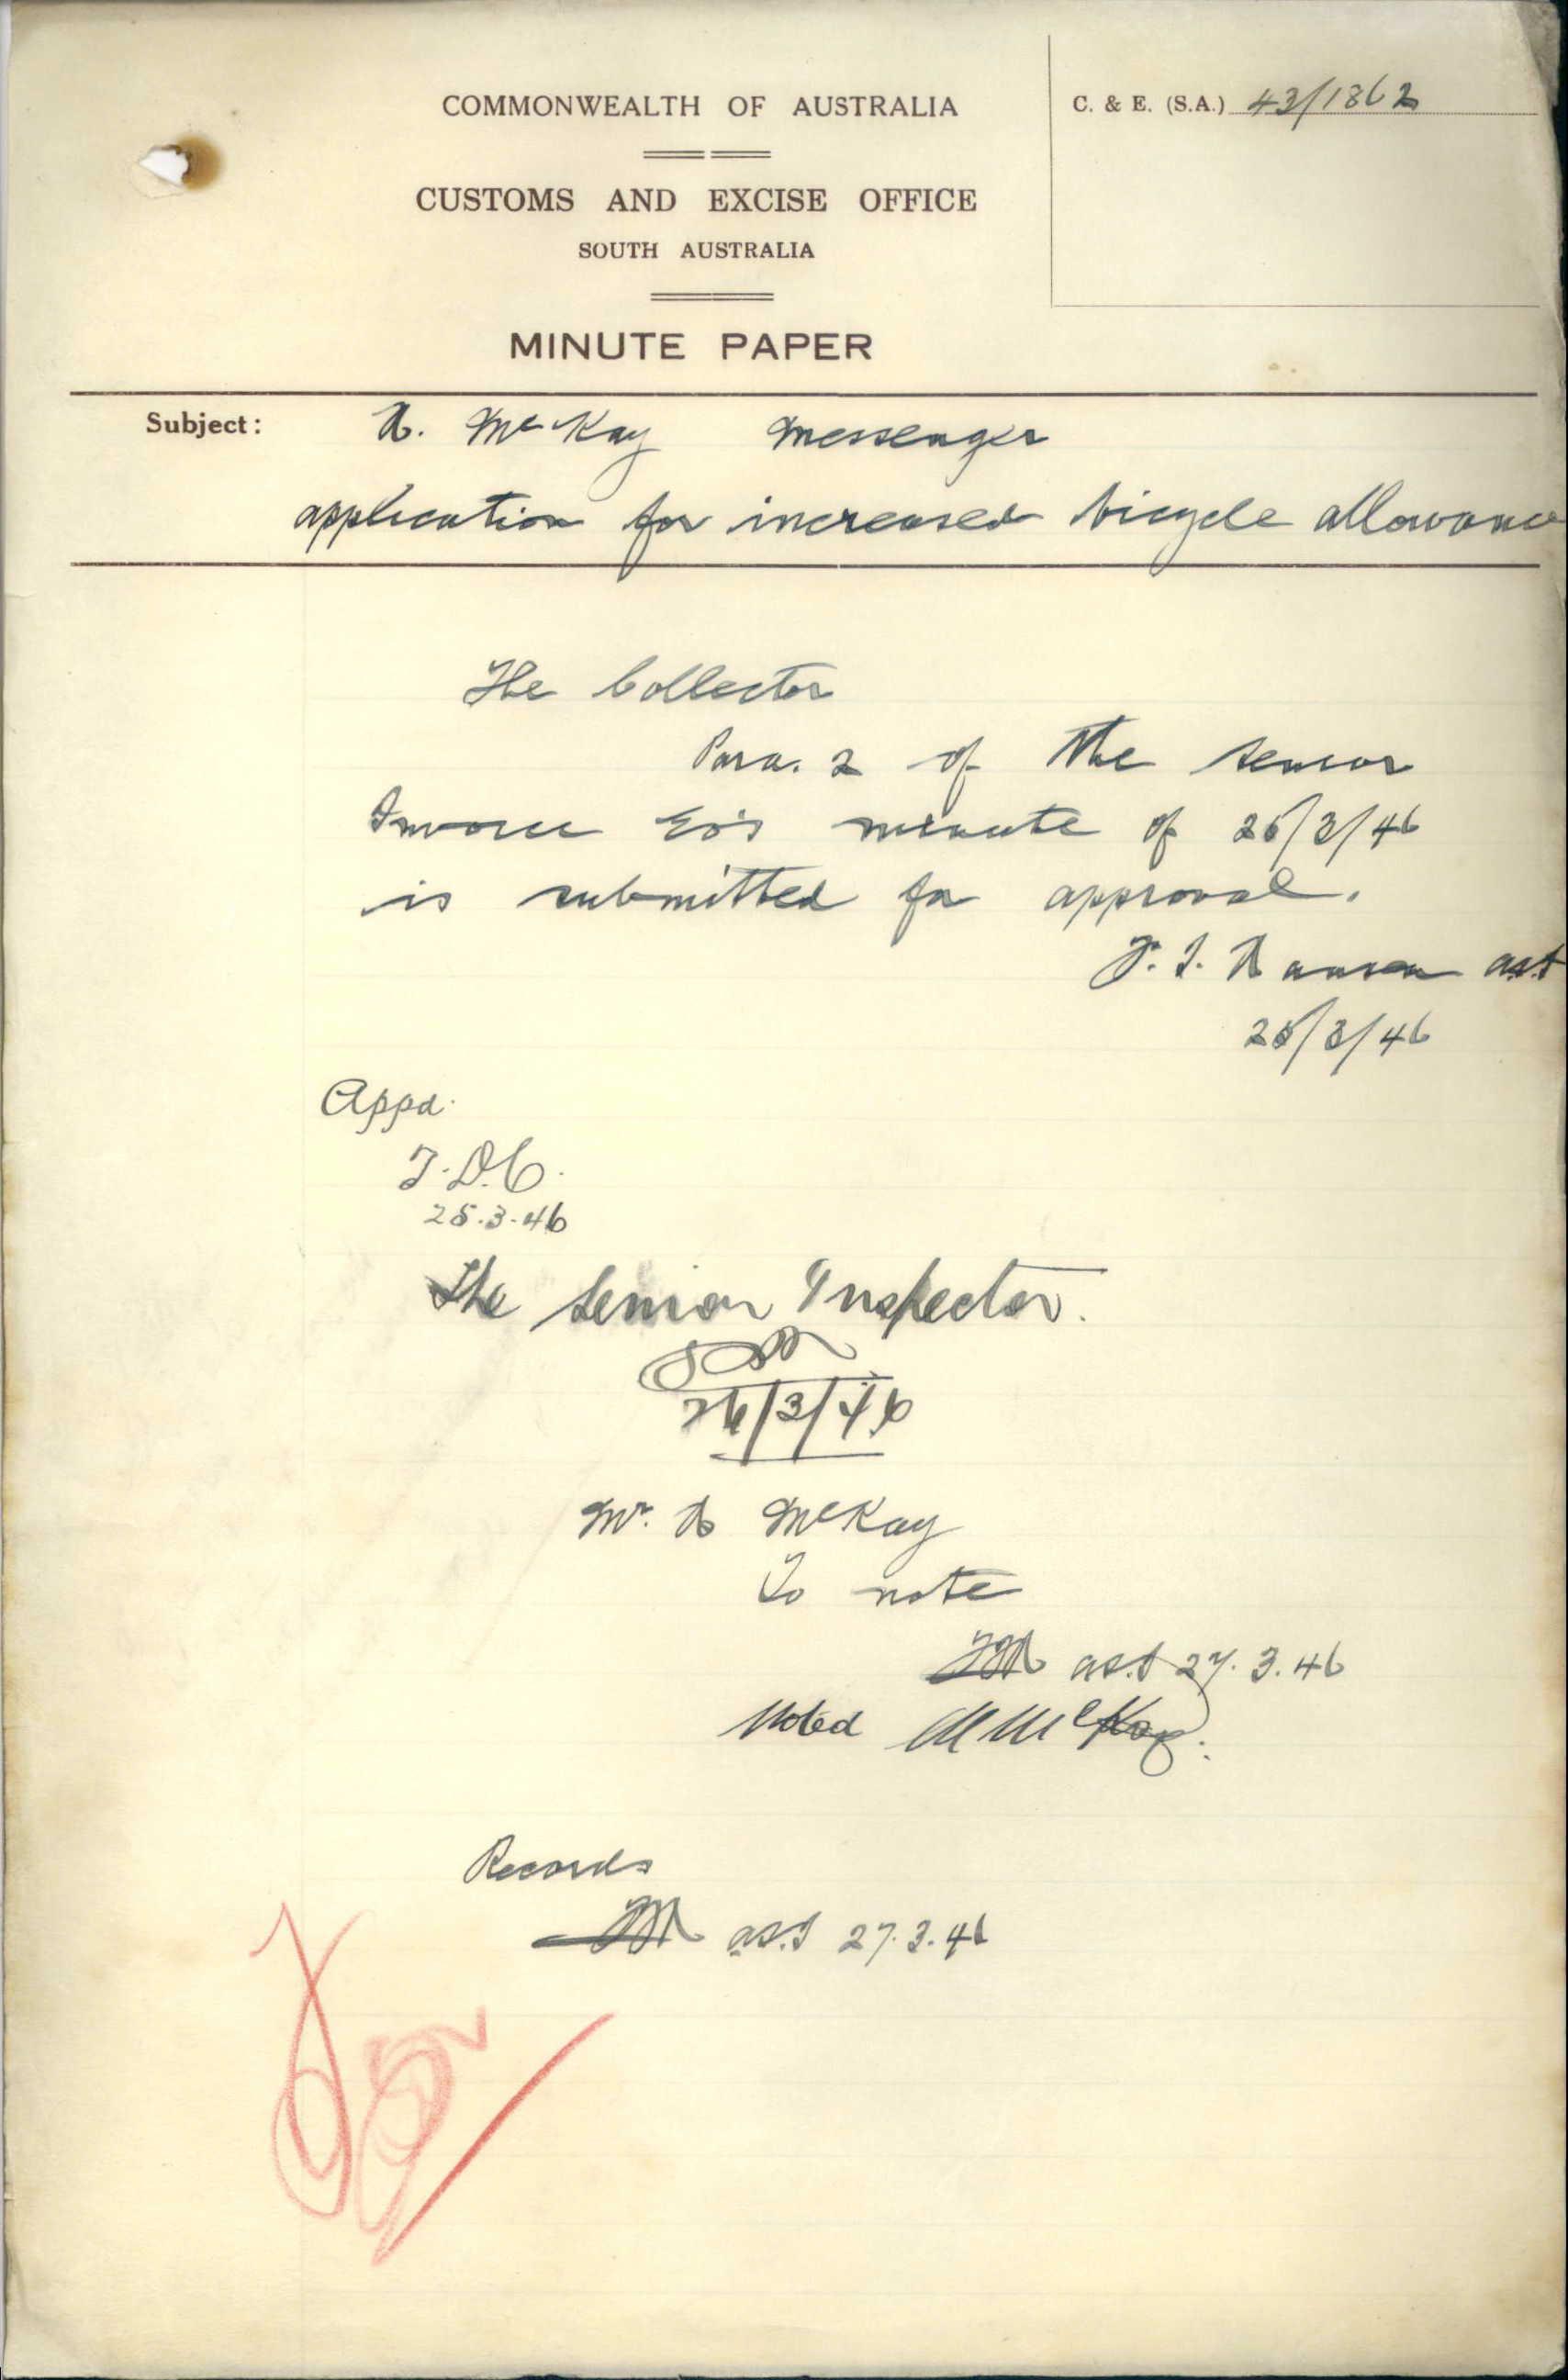 COMMONWEALTH OF AUSTRALIA
C. & E. (S.A.) 43/1862
CUSTOMS AND EXCISE OFFICE
SOUTH AUSTRALIA
MINUTE PAPER
Subject: A. McKay Messenger
application for increased bicycle allowance
The Collector
Para. 2 of the Senior
Invoice Eo's minute of 25/3/46
is submitted for approval.
25/3/46
Appd.
J.D.C.
25.3.46
The Senior Inspector.
26/3/46
Mr. A McKay
To note
27.3.46
Noted A McKay.
Records
27.3.46